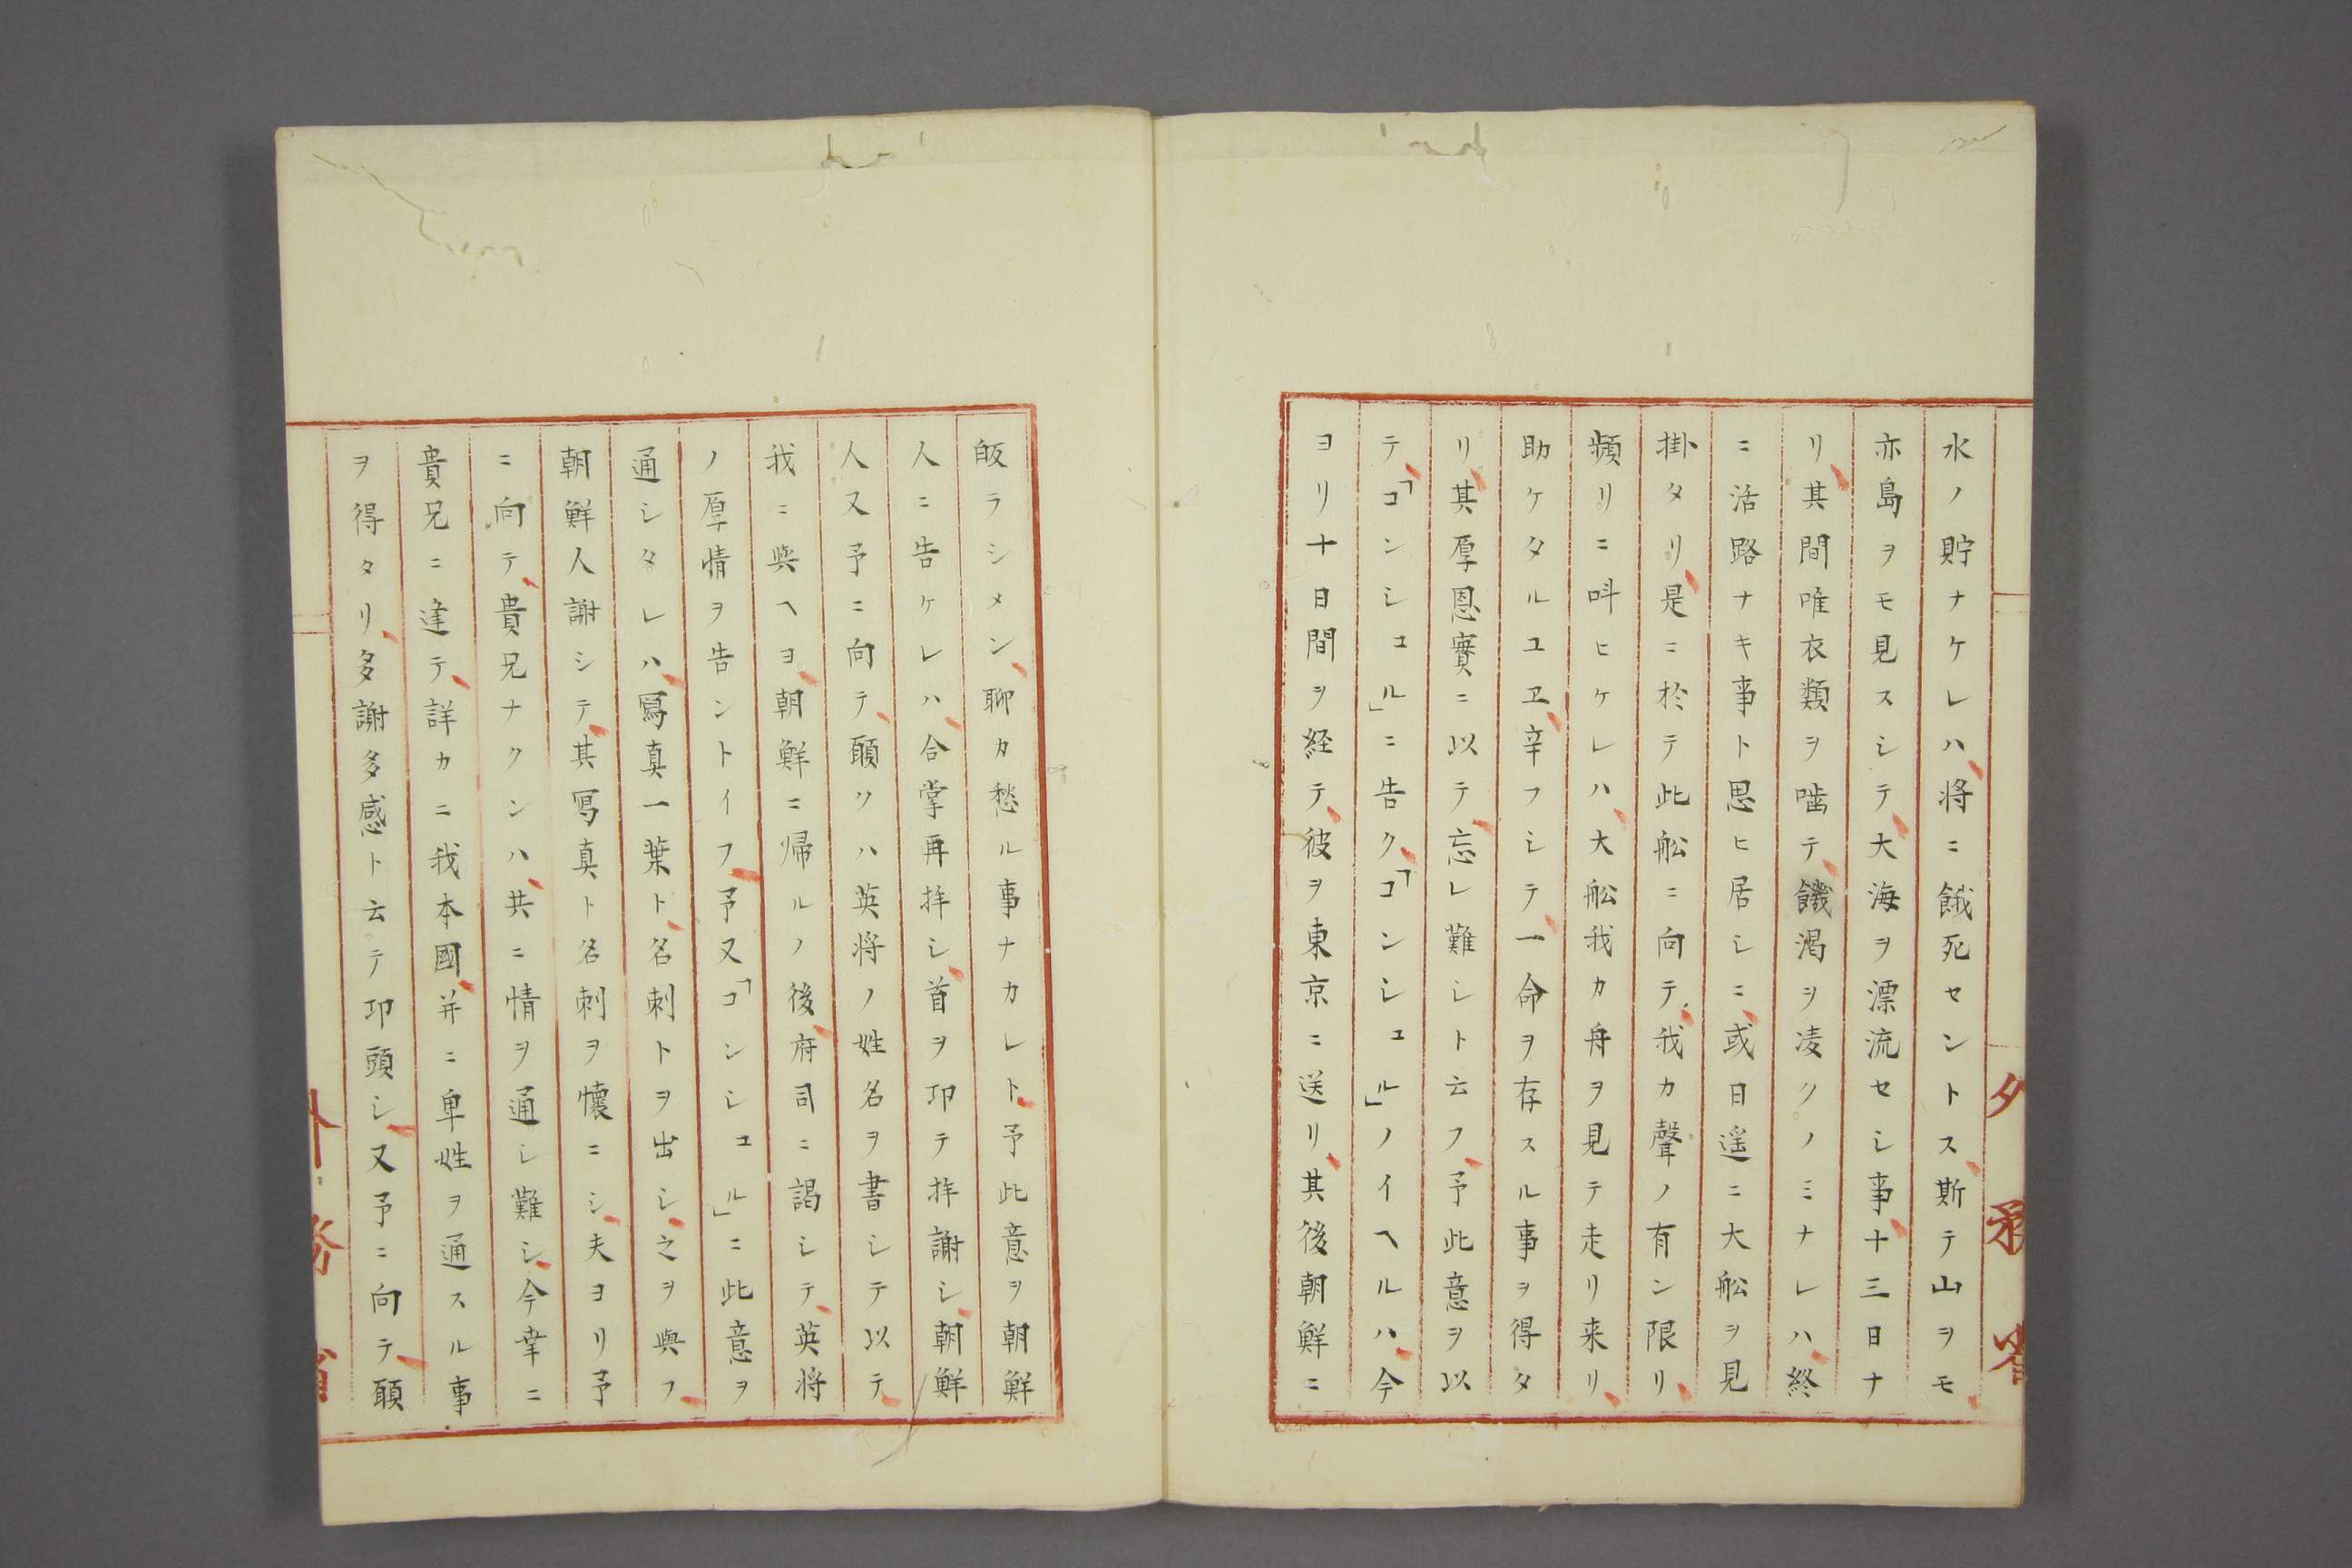 水ノ貯ナケレハ、将ニ餓死セントス、斯テ山ヲモ、
亦島ヲモ見スシテ、大海ヲ漂流セシ事、十三日ナ
リ、其間唯衣類ヲ噛テ、饑渇ヲ凌クノミナレハ、終
ニ活路ナキ事ト思ヒ居シニ、或日遥ニ大舩ヲ見
掛タリ、是ニ於テ此舩ニ向テ、我カ聲ノ有ン限リ、
頻リニ呌ヒケレハ、大舩我カ舟ヲ見テ走リ来リ、
助ケタルユヱ、辛フシテ、一命ヲ存スル事ヲ得タ
リ、其厚恩實ニ以テ、忘レ難シト云フ、予此意ヲ以
テ、「コンシユル」ニ告ク、「コンシユル」ノイヘルハ、今
ヨリ十日間ヲ経テ、彼ヲ東京ニ送リ、其後朝鮮ニ
皈ラシメン、聊カ愁ル事ナカレト、予此意ヲ朝鮮
人ニ告ケレハ、合掌再拝シ、首ヲ卬テ拝謝シ、朝鮮
人又予ニ向テ、願ツハ英将ノ姓名ヲ書シテ以テ、
我ニ與ヘヨ、朝鮮ニ帰ルノ後、府司ニ謁シテ、英将
ノ厚情ヲ告ントイフ、予又「コンシユル」ニ此意ヲ
通シタレハ、寫真一葉ト、名刺トヲ出シ、之ヲ與フ、
朝鮮人謝シテ、其寫真ト名刺ヲ懐ニシ、夫ヨリ予
ニ向テ、貴兄ナクンハ、共ニ情ヲ通シ難シ、今幸ニ
貴兄ニ逢テ、詳カニ我本國、并ニ卑姓ヲ通スル事
ヲ得タリ、多謝多感ト云テ卬頭シ、又予ニ向テ、願
外務省